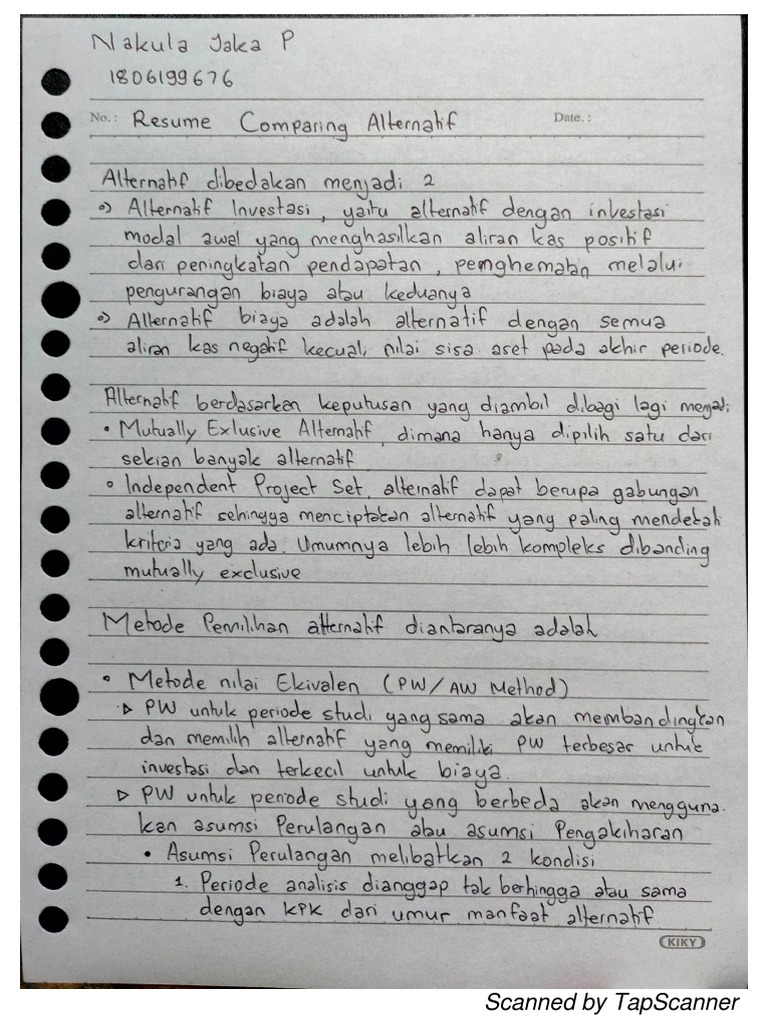 Nakula Jaka P
1806199676
No.: Resume Comparing Alternatif Date.:
Alternatif dibedakan menjadi 2
o) Alternatif Investasi, yaitu alternatif dengan investasi
modal awal yang menghasilkan aliran kas positif
dari peningkatan pendapatan, penghematan melalui
pengurangan biaya atau keduanya
o) Alternatif biaya adalah alternatif dengan semua
aliran kas negatif kecuali nilai sisa aset pada akhir periode.
Alternatif berdasarkan keputusan yang diambil dibagi lagi menjadi
• Mutually Exlusive Alternatif, dimana hanya dipilih satu dari
sekian banyak alternatif
• Independent Project Set, alternatif dapat berupa gabungan
alternatif sehingga menciptakan alternatif yang paling mendekati
kriteria yang ada. Umumnya lebih lebih kompleks dibanding
mutually exclusive
Metode Pemilihan alternatif diantaranya adalah
• Metode nilai Ekivalen (PW/AW Method)
▷ PW untuk periode studi yang sama akan membandingkan
dan memilih alternatif yang memiliki PW terbesar untuk
investasi dan terkecil untuk biaya.
▷ PW untuk periode studi yang berbeda akan mengguna-
kan asumsi Perulangan atau asumsi Pengakiharan
• Asumsi Perulangan melibatkan 2 kondisi
1. Periode analisis dianggap tak berhingga atau sama
dengan KPK dari umur manfaat alternatif
KIKY
Scanned by TapScanner